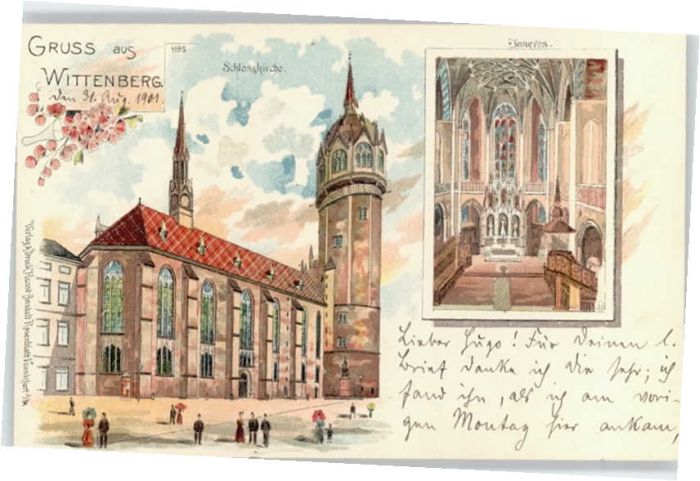 GRUSS AUS
WITTENBERG.
den 31. Aug. 1901.
1195
Schlosskirche.
Inneres.
Lieber Hugo! Für Deinen l.
Brief danke ich Dir sehr; ich
fand ihn, als ich am vori-
gen Montag hier ankam,